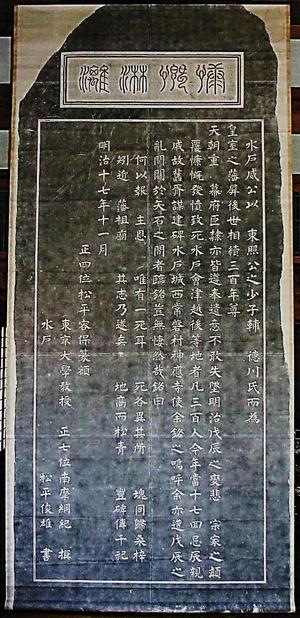 水戶威公以　東照公之少子輔　德川氏而為
皇室之藩屏後世相續三百年尊
天朝重　幕府臣隸亦皆遵奉遺意不敢失墜明治戊辰之變悲　宗家之顛
覆慷慨發憤致死水戶會津越後等地者凡三百人今年當十七回忌辰親
戚故舊胥謀建碑水戶城西常磐村神應寺使余銘之嗚呼余亦遭戊辰之
亂間關於矢石之間者臨銘豈無悽然哉銘曰
何以報　主恩　唯有一死耳　死各異其所　魂同歸桑梓
矧近　藩祖廟　其志乃遂矣　地高而松青　豐碑傳千祀
明治十七年十一月
正四位松平容保篆額
東京大學教授　正七位南摩綱紀　撰
水戶　松平俊雄　書